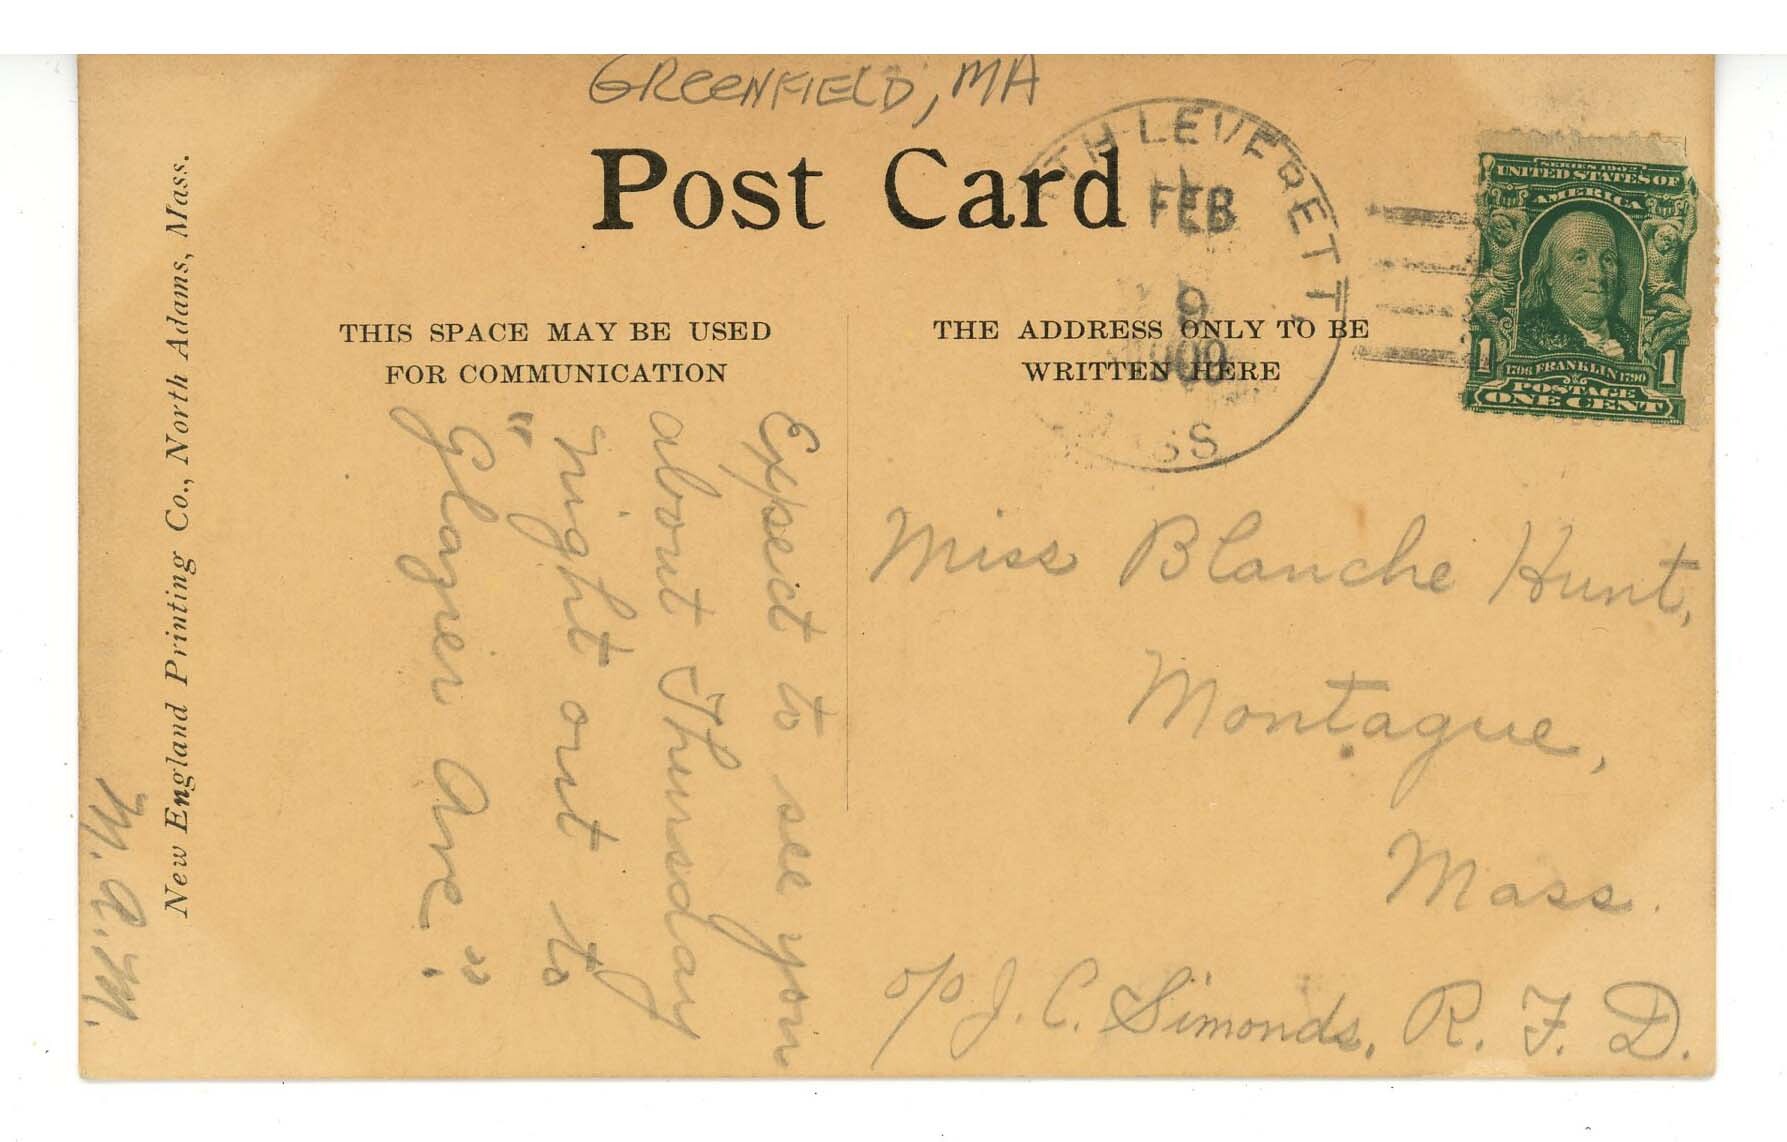 GREENFIELD, MA
Post Card
TH LEVERETT
FEB
9
1909
SS
SERIES 1902
UNITED STATES OF
AMERICA
1 1706 FRANKLIN 1790 1
POSTAGE
ONE CENT
THIS SPACE MAY BE USED
FOR COMMUNICATION
THE ADDRESS ONLY TO BE
WRITTEN HERE
New England Printing Co., North Adams, Mass.
Expect to see you
about Thursday
night out to
"Glazier Ave".
M. A. M.
Miss Blanche Hunt,
Montague,
Mass.
c/o J. C. Simonds, R. F. D.